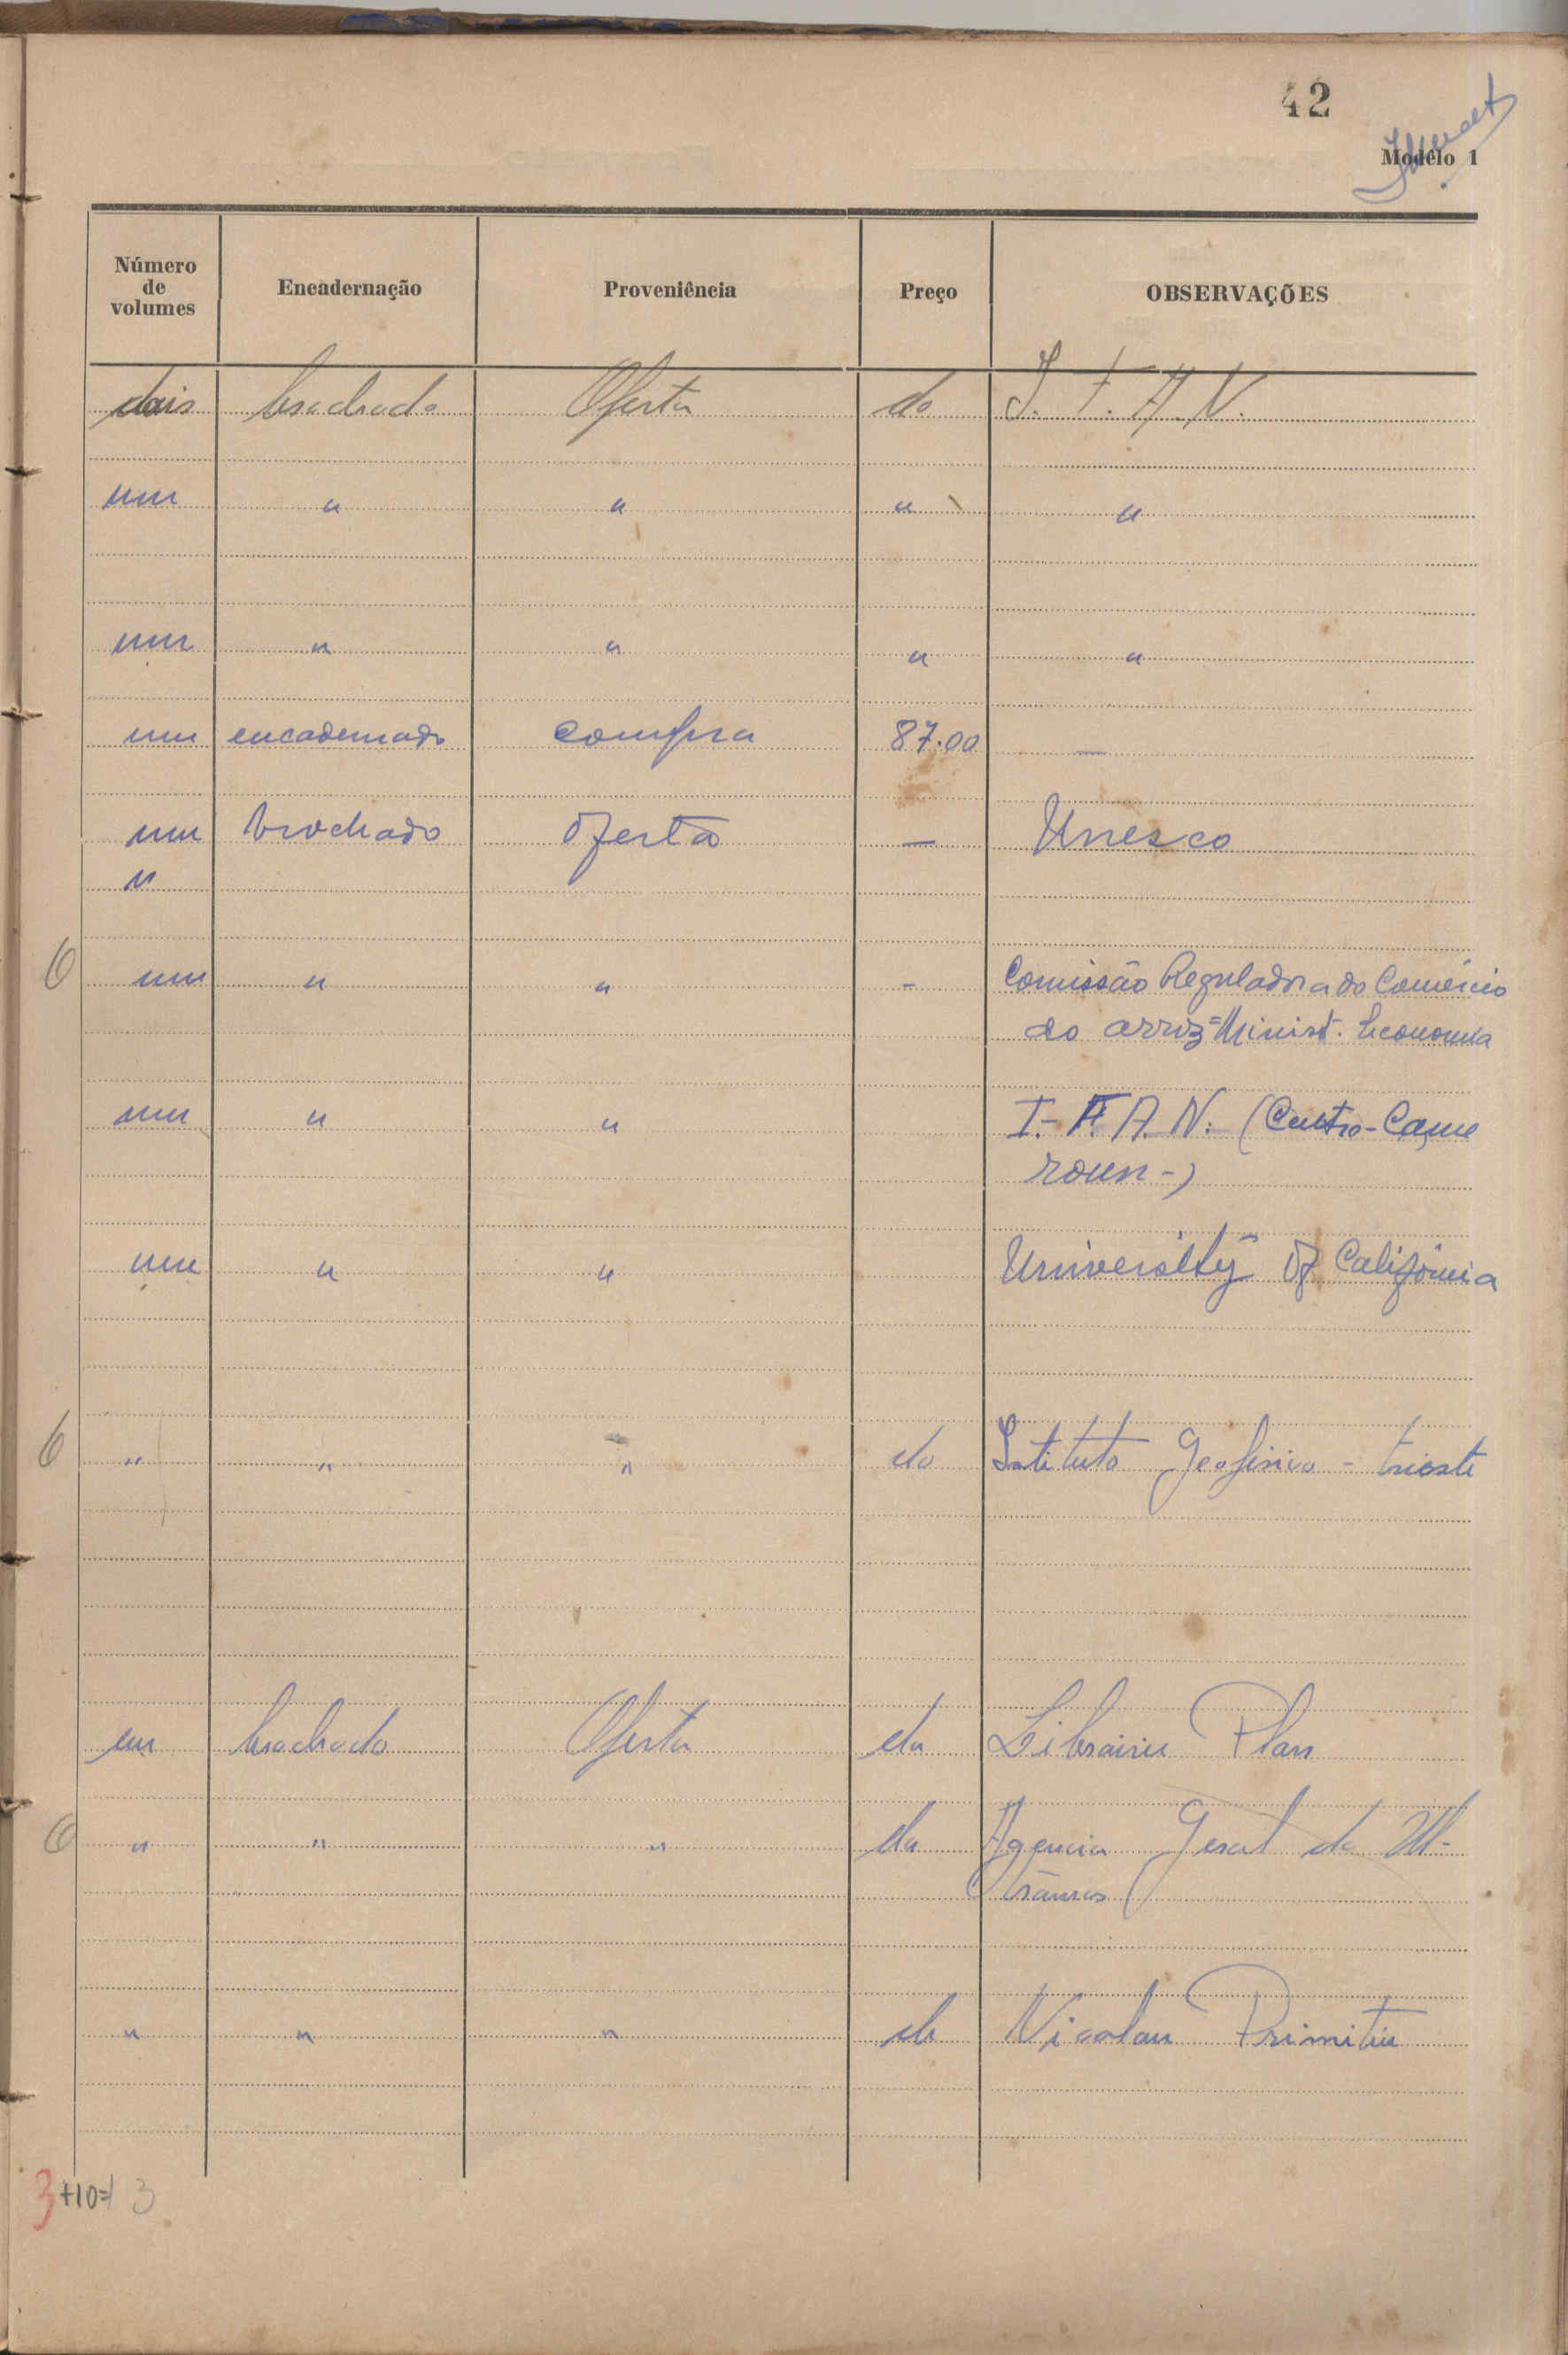 42
Modêlo 1
Número de volumes Encadernação Proveniência Preço OBSERVAÇÕES
dois brochado Oferta do I. F. A. N.
um " " " "
um " " " "
um encadernado compra 87.00 —
um brochado oferta — Unesco
"
6 um " " - Comissão Reguladora do Comércio
do arroz = Minist. Economia
um " " I.- F. A. N. (Centro - Came
roun -)
um " " University of Califórnia
6 " " " do Intituto Geofísico - trieste
um brochado Oferta da Librairie Plan
6 " " " da Agencia Geral do Ul-
tramar
" " " de Nicolau Primitiu
3+10=13